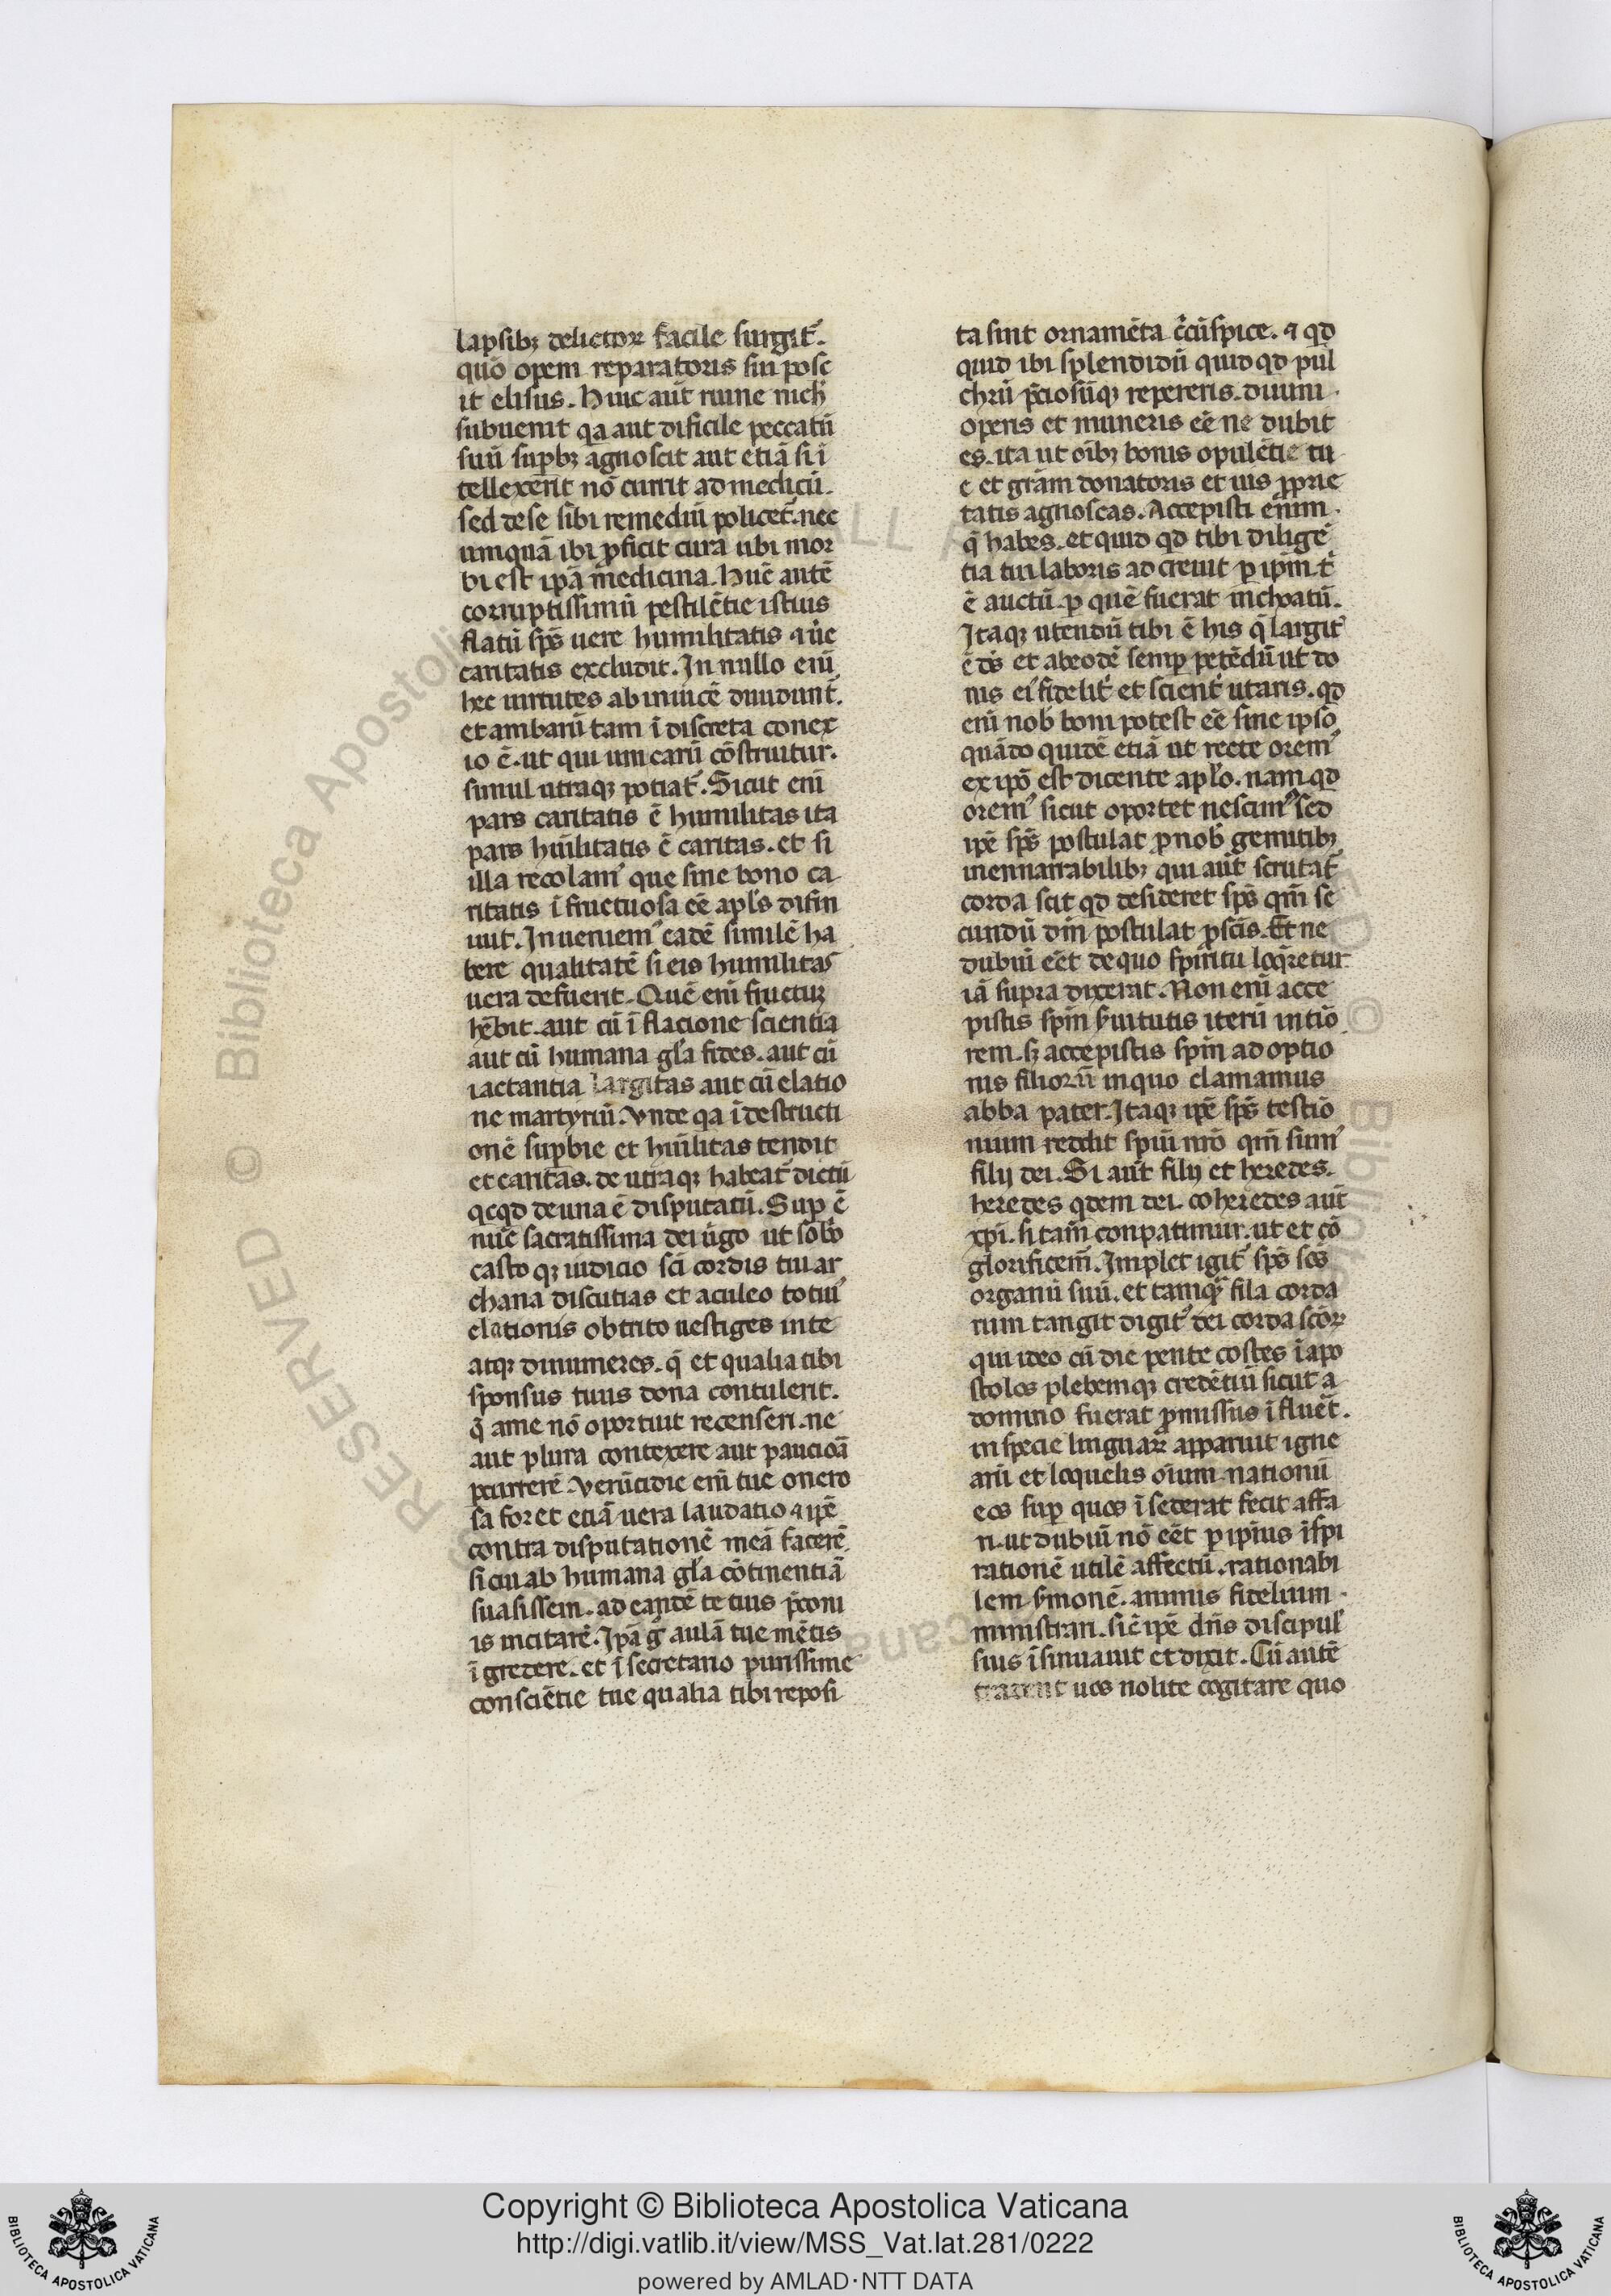 lapsibꝫ delictoꝝ facile surgit᷒.
quō opem reparatoris sui posc
it elisus. Huic aūt ruine nich̄
subuenit qa aut dificile peccatū
suū supbꝫ agnoscit aut etiā si ī
tellexerīt nō currit ad medicū.
sed de se sibi remediū policet᷒. nec
umquā ibi ꝓficit cura ubi mor
bi est ip̄a medicina. Hūc autē
corruptissimū pestilētie istius
flatū sp̄s uere humilitatis ⁊ ūe
caritatis excludit. In nullo enī
hec uirtutes ab inuicē diuidunt᷒.
et ambarū tam ī discreta conex
io ē. ut qui um earū cōstruitur.
simul utraqꝫ potiat᷒. Sicut enī
pars caritatis ē humilitas ita
pars hūilitatis ē caritas. et si
illa recolam᷒ que sine bono ca
ritatis ī fructuosa eē apl̄s difin
uit. Inueniem᷒ eadē similē ha
bere qualitatē si eis humilitas
uera defuerit. Quē enī fructuꝫ
hēbit. aut cū ī flacione scientia
aut cū humana gl̄a fides. aut cū
iactantia largitas aut cū elatio
ne martyriū. Vnde qa ī destructi
onē supbie et hūilitas tendit
et caritas. de utraqꝫ habeat᷒ dictū
qcqd de una ē disputatū. Sup ē
nūc sacratissima dei ūgo ut sobō
casto qꝫ iudicio sc̄i cordis tui ar
chana discutias et aculeo totiū
elationis obtrito uestiges inte
atqꝫ dinumeres. q̄ et qualia tibi
sponsus tuus dona contulerit.
q̄ a me nō oportuit recenseri. ne
aut plura contexere aut paucioā
ꝑcurrerē. Verūcidie enī tue onero
sa foret etiā uera laudatio ⁊ ip̄e
contra disputationē meā facerē.
si cū ab humana gl̄a cōtinentiā
suasissem. ad eandē te tuis p̄coni
is incitarē. Ip̄a g̊ aulā tue mētis
ī gredere. et ī secretario purissime
consciētie tue qualia tibi reposi
ta sint ornamēta c̄cūspice. ⁊ qd
quid ibi splendidū quid qd pul
chrū p̄ciosūqꝫ repereris. diuini
operis et muneris eē ne dubit
es. ita ut oībꝫ bonis opulētie tu
e et grām donatoris et ius ꝓprie
tatis agnoscas. Accepisti enim
q̄ habes. et quid qd tibi diligē
tia tui laboris ad creuit ꝑ ip̄m t᷒
ē auctū. ꝑ quē fuerat inchoatū.
Itaqꝫ utendū tibi ē his q̄ largit᷒
ē ds̄ et ab eodē semꝑ petēdū ut do
nis ei᷒ fidelit᷒ et scient᷒ utaris. qd
enī nob̄ boni potest eē sine ipso
quādo quidē etiā ut recte orem᷒
ex ip̄o est dicente apl̄o. nam qd
orem᷒ sicut oportet nescim᷒ sed
ip̄e sp̄s postulat ꝓ nob̄ gemitibꝫ
inennarrabilibꝫ qui aūt scrutat᷒
corda scit qd desideret sp̄s qm̄ se
cundū dm̄ postulat ꝓ sc̄is. Et ne
dubiū eēt de quo spiritu loq̄retur
iā supra dixerat. Non enī acce
pistis sp̄m s̄uitutis iterū in tiō
rem. sꝫ accepistis sp̄m adoptio
nis filiorū in quo clamamus
abba pater. Itaqꝫ ip̄e sp̄s testiō
nium reddit sp̄ui nr̄o qm̄ sum᷒
filij dei. Si aūt filij et heredes.
heredes qdem dei. coheredes aūt
xp̄i. si tam̄ conpatimur. ut et cō
glorificem᷒. Implet igit᷒ sp̄s sc̄s
organū suū. et tamq̄ fila corda
rum tangit digit᷒ dei corda sc̄oꝝ
qui ideo cū die pentecostes ī apo
stolos plebemqꝫ credētiū sicut a
domino fuerat ꝓmissus ī flueret.
in specie linguaꝝ apparuit igne
arū et loquelis oīum nationū
eos suꝑ quos ī sederat fecit affa
ri. ut dubiū nō eēt ꝑ ipius īspi
rationē utilē affectū. rationabi
lem s̄monē. animis fidelium
ministrari. sic̄ ip̄e dn̄s discipul᷒
suis īsinuauit et dixit. Cū autē
tradent uos nolite cogitare quo
Copyright © Biblioteca Apostolica Vaticana
http://digi.vatlib.it/view/MSS_Vat.lat.281/0222
powered by AMLAD·NTT DATA